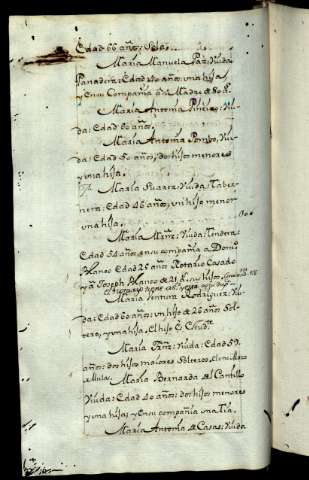 Edad 66 años: Sola.
Maria Manuela Paz: Viuda
Panadera: Edad 40 años: una hija
y en su Compañia a su Madre de 80 a.
Maria Antonia Piñeiro: Viu-
da: Edad 60 años.
Maria Antonia Pombo, Viu-
da: Edad 50 años, dos hijos menores
y una hija.
Maria Suarez: Viuda: Taber-
nera: Edad 46 años, un hijo menor
una hija.
Maria Mrnz: Viuda: Tendera:
Edad 54 años: en su compañia a Domo
Blanco Edad 25 años Notario Casado
y a Joseph Blanco de 21
Maria Ventura Rodriguez: Viu-
da: Edad 60 años: un hijo de 26 años Sol-
tero, y una hija, El hijo es
Maria Frnz: Viuda: Edad 59.
años: dos hijos maiores Solteros,
de Mula. Maria Bernarda del Cantillo
Viuda: Edad 40 años: dos hijos menores
y una hija: y en su compañia una Tia.
Maria Antonia de Casas: Viuda